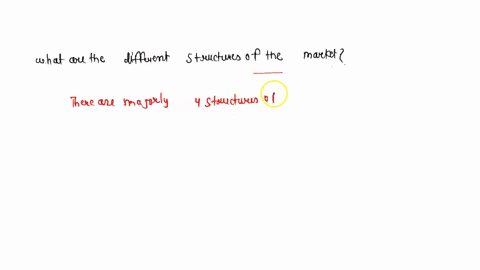 what are the different structures of the market?
There are majorly 4 structures of